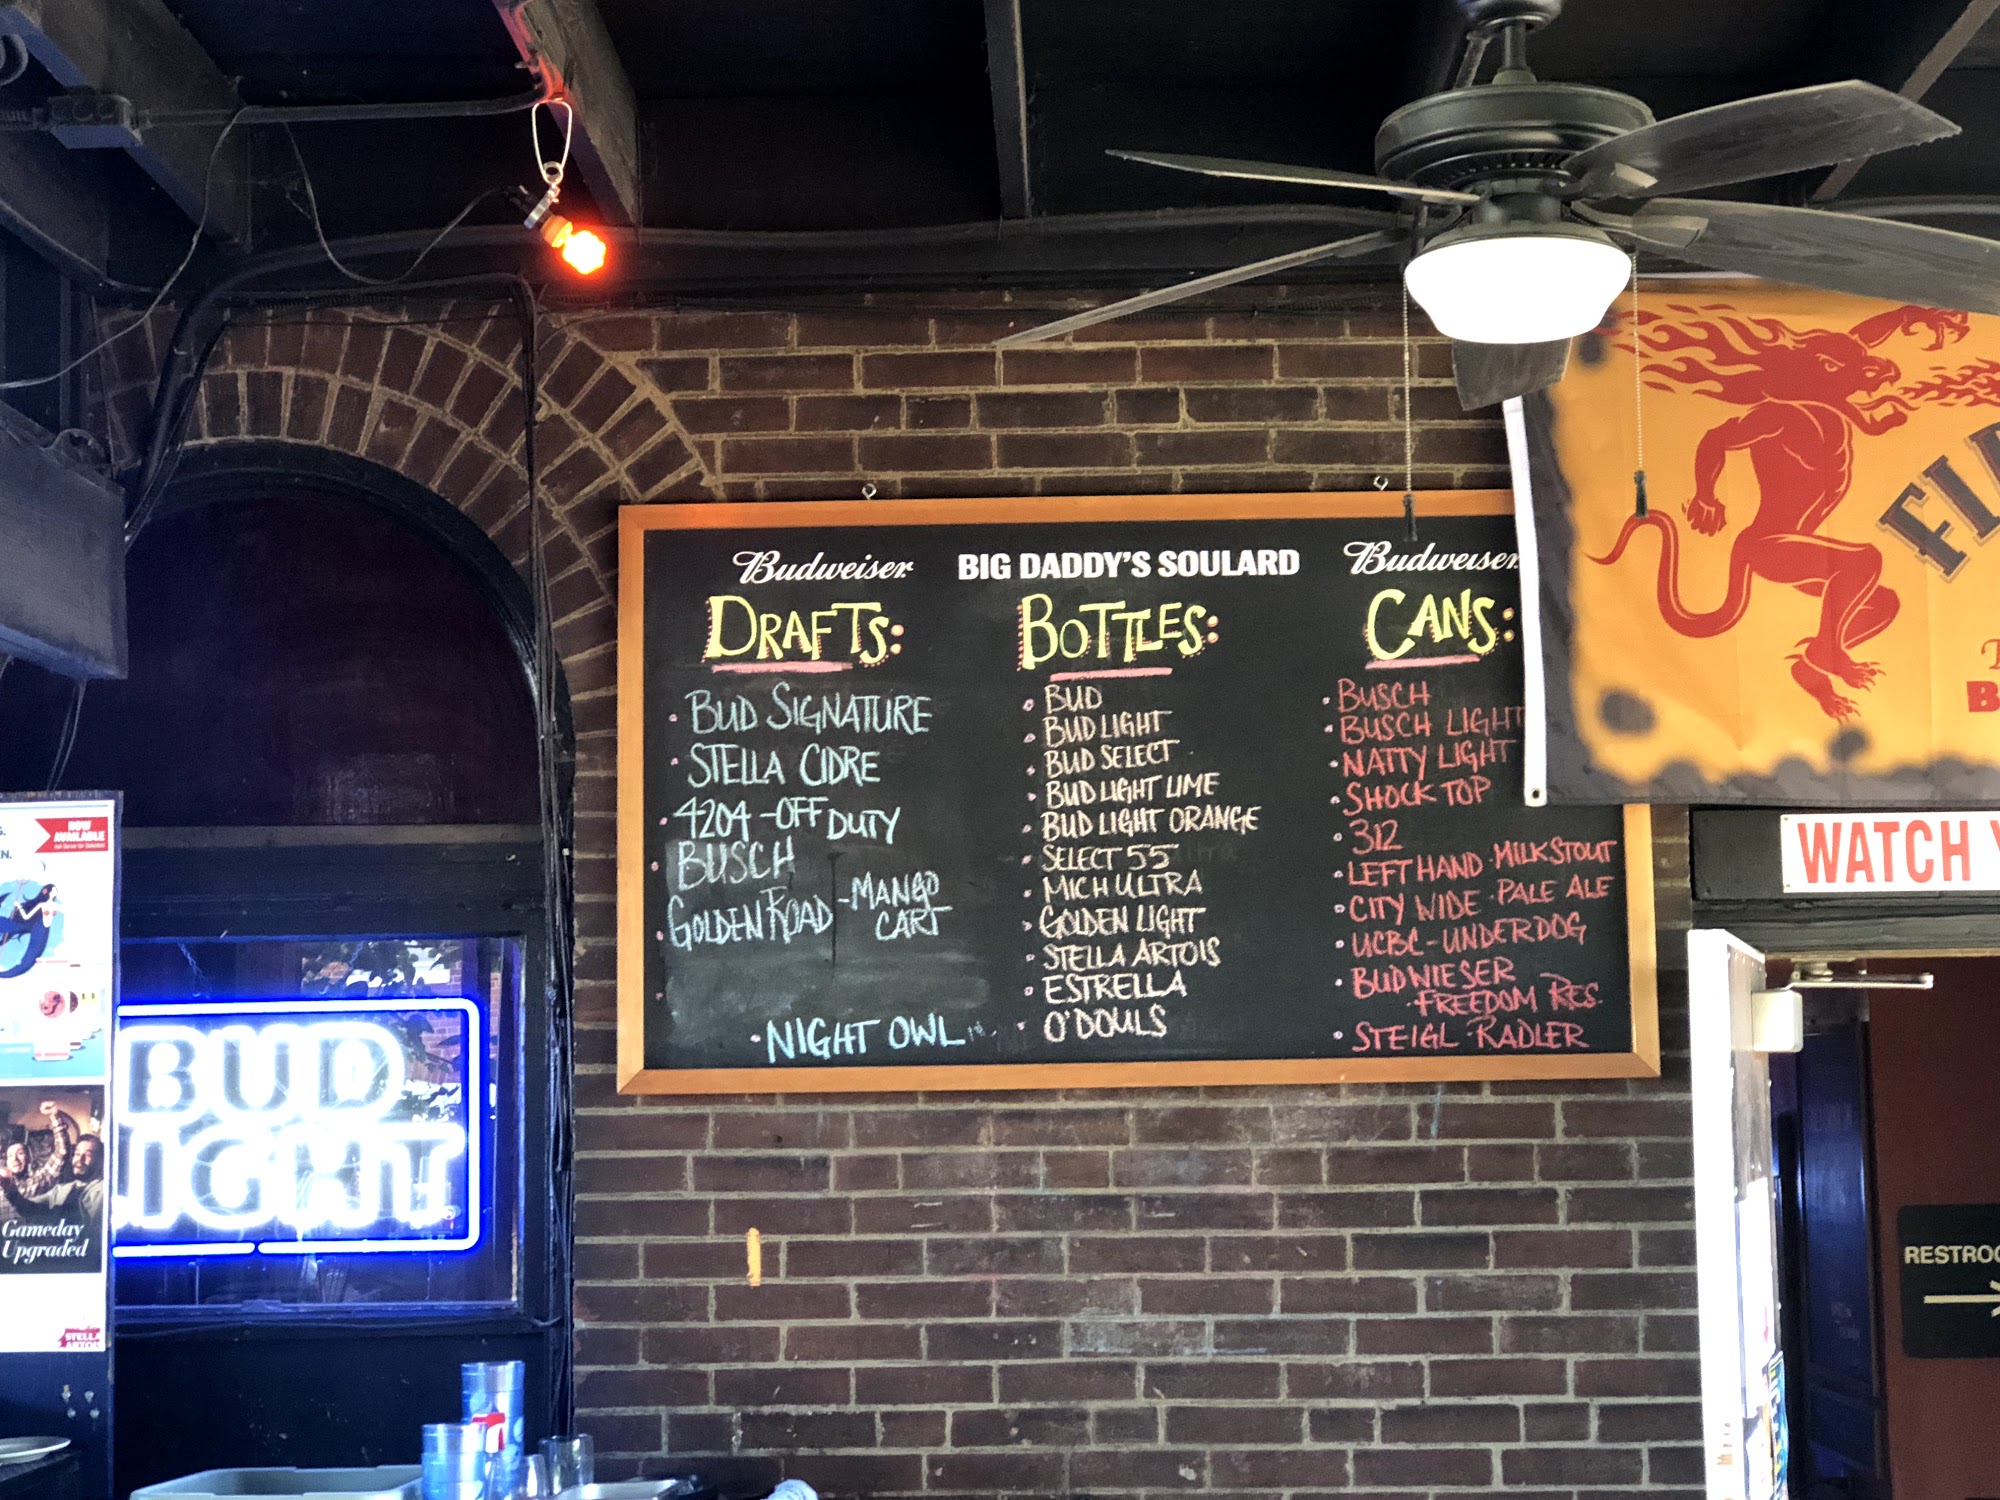 Budweiser
BIG DADDY'S SOULARD
Budweiser
DRAFTS:
BUD SIGNATURE
STELLA CIDRE
4204-OFF DUTY
BUSCH
GOLDEN ROAD - MANGO
CART
NIGHT OWL
BOTTLES:
BUD
BUD LIGHT
BUD SELECT
BUD LIGHT LIME
BUD LIGHT ORANGE
SELECT 55
MICH ULTRA
GOLDEN LIGHT
STELLA ARTOIS
ESTRELLA
O'DOULS
CANS:
BUSCH
BUSCH LIGHT
NATTY LIGHT
SHOCK TOP
312
LEFT HAND · MILK STOUT
CITY WIDE · PALE ALE
UCBC - UNDERDOG
BUDWIESER
· FREEDOM RES.
STEIGL · RADLER
WATCH
BUD
LIGHT
NOW
AVAILABLE
Gameday
Upgraded
STELLA
ARTOIS